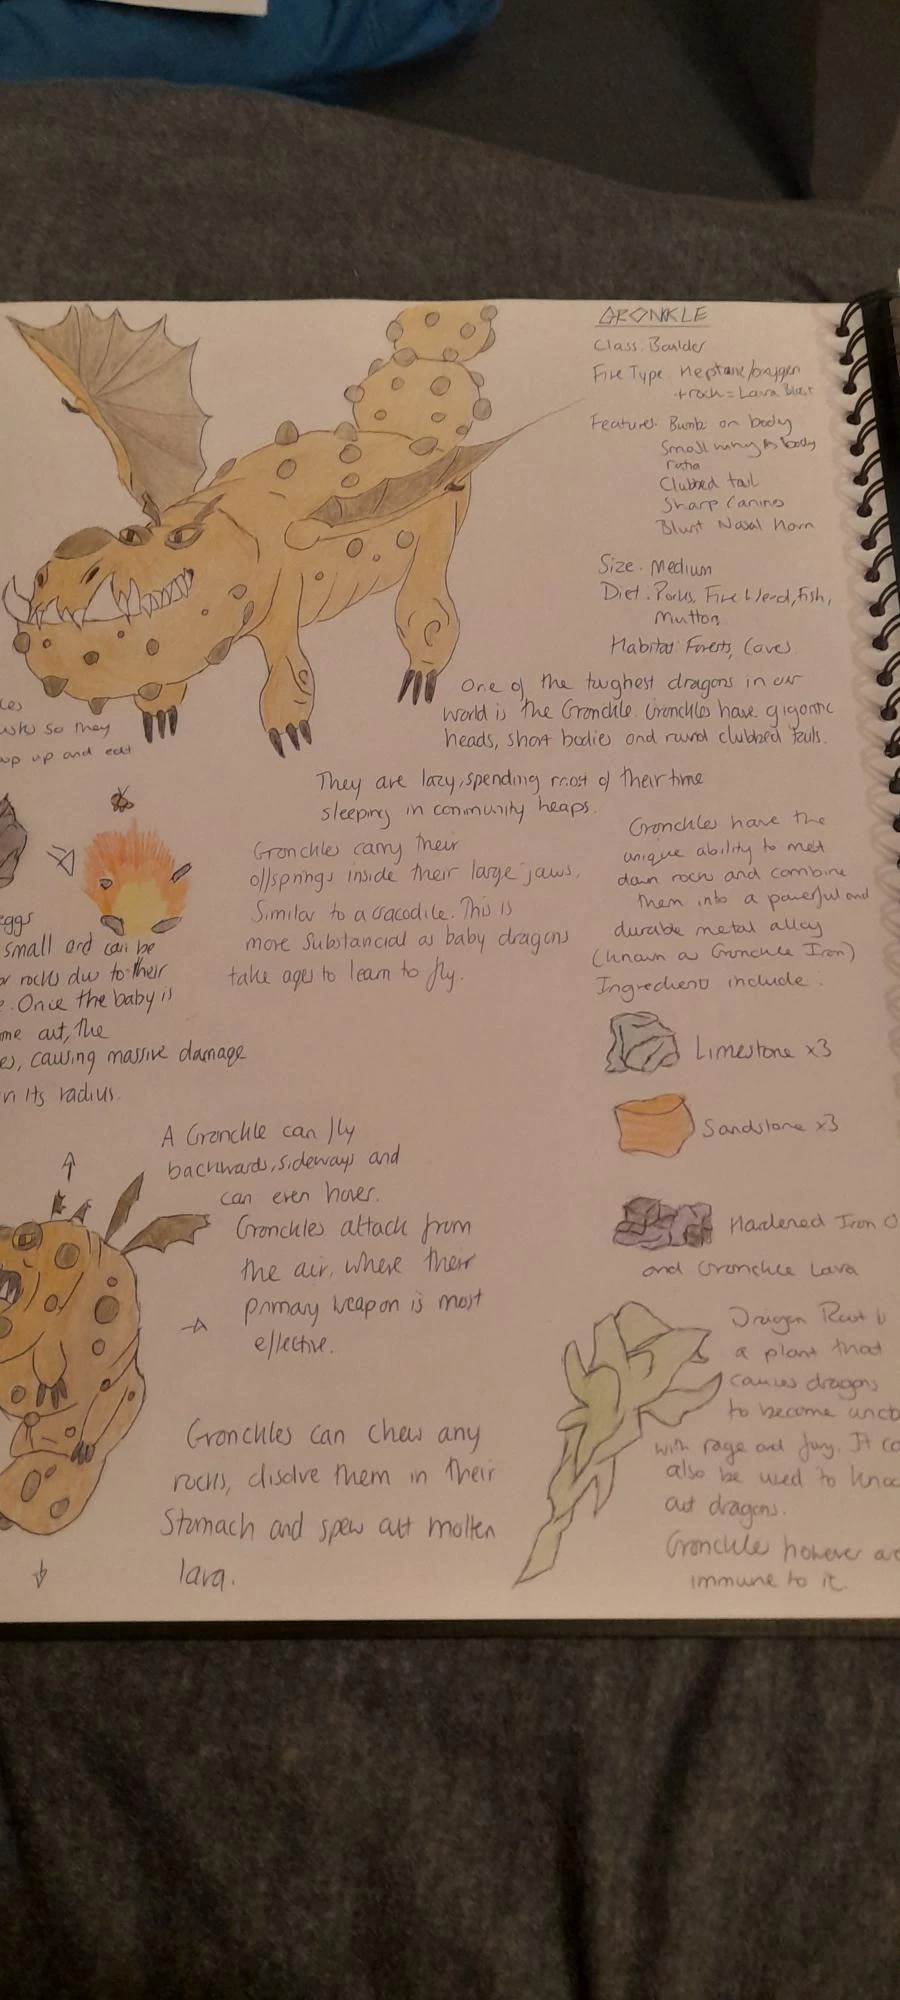 GRONKLE
Class: Boulder
Fire Type: Heptane/oxygen
+rock = Lava Blast
Features: Bumbs on body
Small wing to body
ratio
Clubbed tail
Sharp Canins
Blunt Nasal Horn
Size: Medium
Diet: Rocks, Fire weed, fish,
Mutton
Habitat: Forests, Caves
One of the tughest dragons in our
world is the Gronckle. Gronckles have gigantic
heads, short bodies and round clubbed tails.
They are lazy, spending most of their time
sleeping in community heaps.
so they
up and eat
Gronckles carry their
offsprings inside their large jaws,
Similar to a cracodile. This is
more Substancial as baby dragons
take ages to learn to fly.
Gronckles have the
unique ability to melt
down rocks and combine
them into a powerful and
durable metal alloy
(known as Gronckle Iron)
Ingredients include:
Limestone x3
Sandstone x3
Hardened Iron O
and Gronckle Lava
eggs
small and can be
or rocks due to their
. Once the baby is
me out, the
es, causing massive damage
n its radius.
A Gronckle can fly
backwards, sideways and
can even hover.
Gronckles attack from
the air, where their
primary weapon is most
effective.
Gronckles can chew any
rocks, disolve them in their
Stomach and spew out molten
lava.
Dragon Root is
a plant that
causes dragons
to become
with rage and fury. It
also be used to
out dragons.
Gronckles however
immune to it.